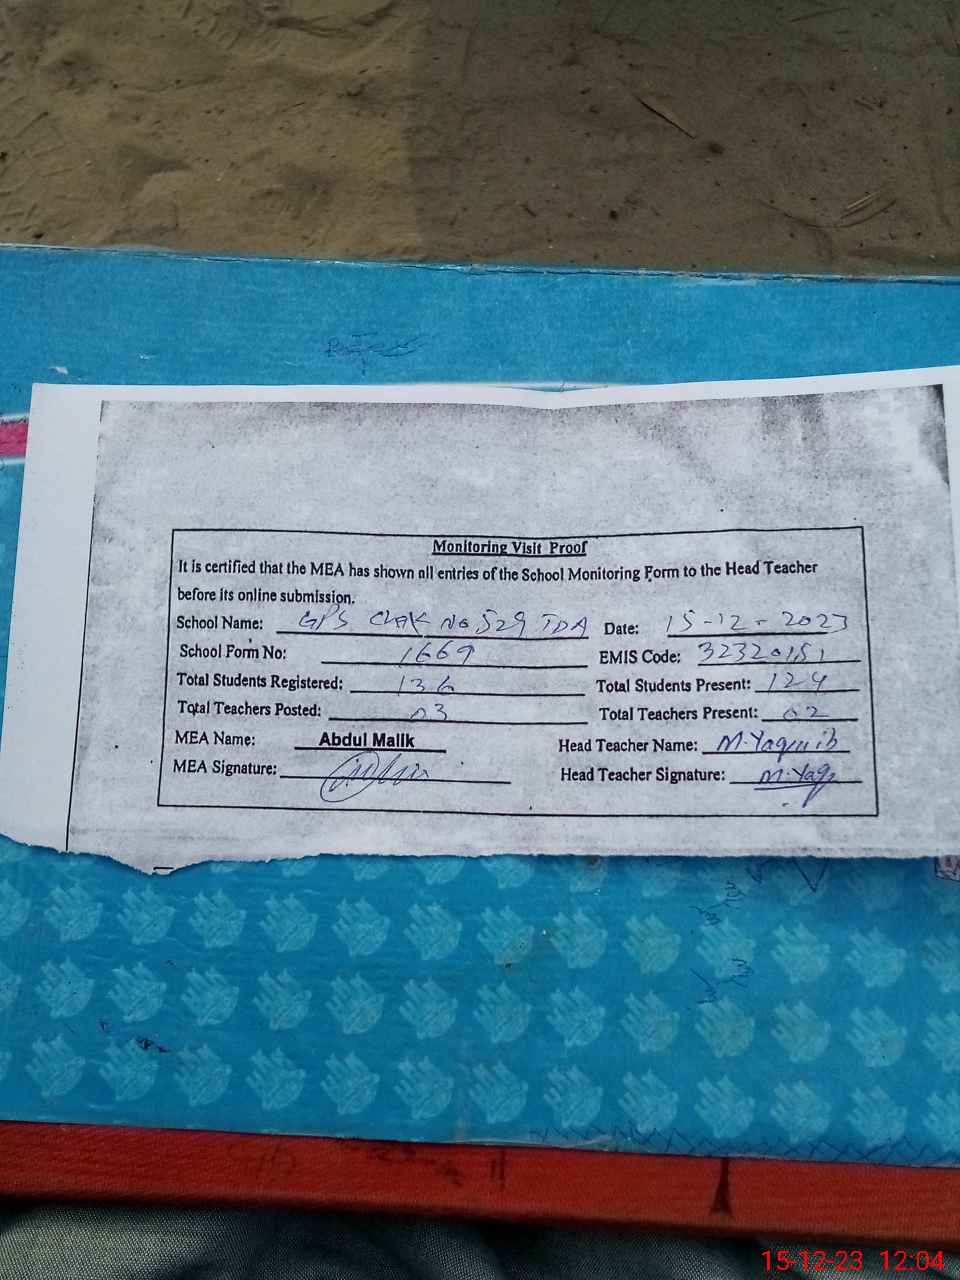 Monitoring Visit Proof
It is certified that the MEA has shown all entries of the School Monitoring Form to the Head Teacher
before its online submission.
School Name: GPS CHAK No 529 TDA Date: 15-12-2023
School Form No: 1669 EMIS Code: 32320151
Total Students Registered: 136 Total Students Present: 124
Total Teachers Posted: 03 Total Teachers Present: 02
MEA Name: Abdul Malik Head Teacher Name: M.Yaquib
MEA Signature: Head Teacher Signature: M.Yaq
15-12-23 12:04